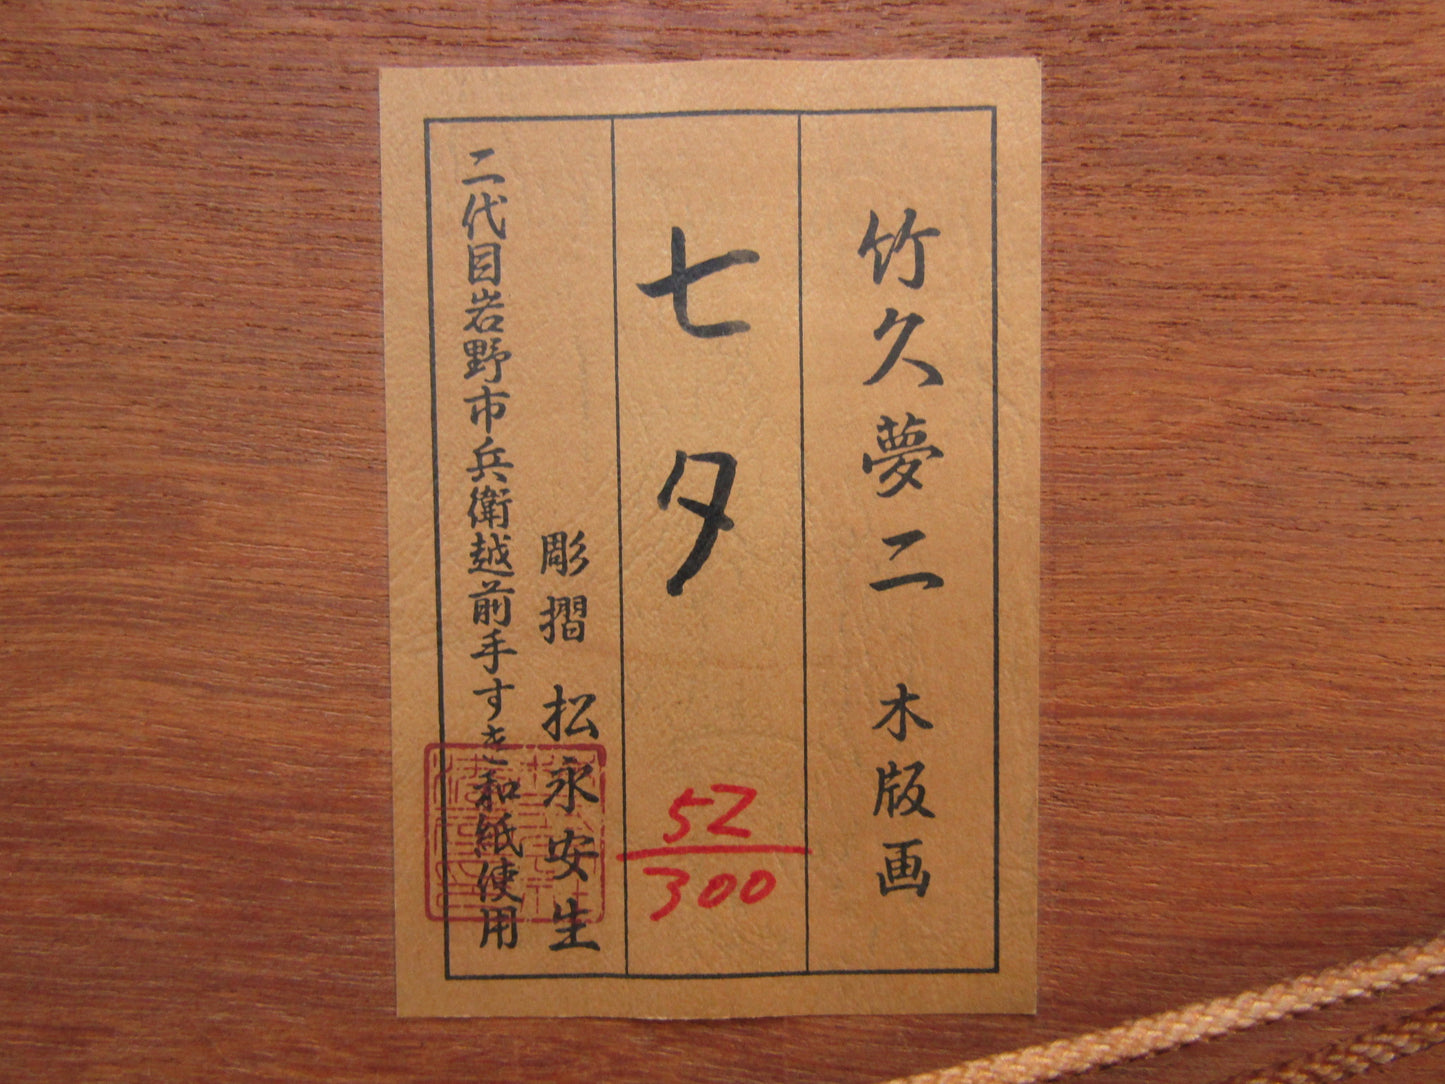 竹久夢二 木版画
七夕
52
300
彫摺 松永安生
二代目岩野市兵衛越前手すき和紙使用